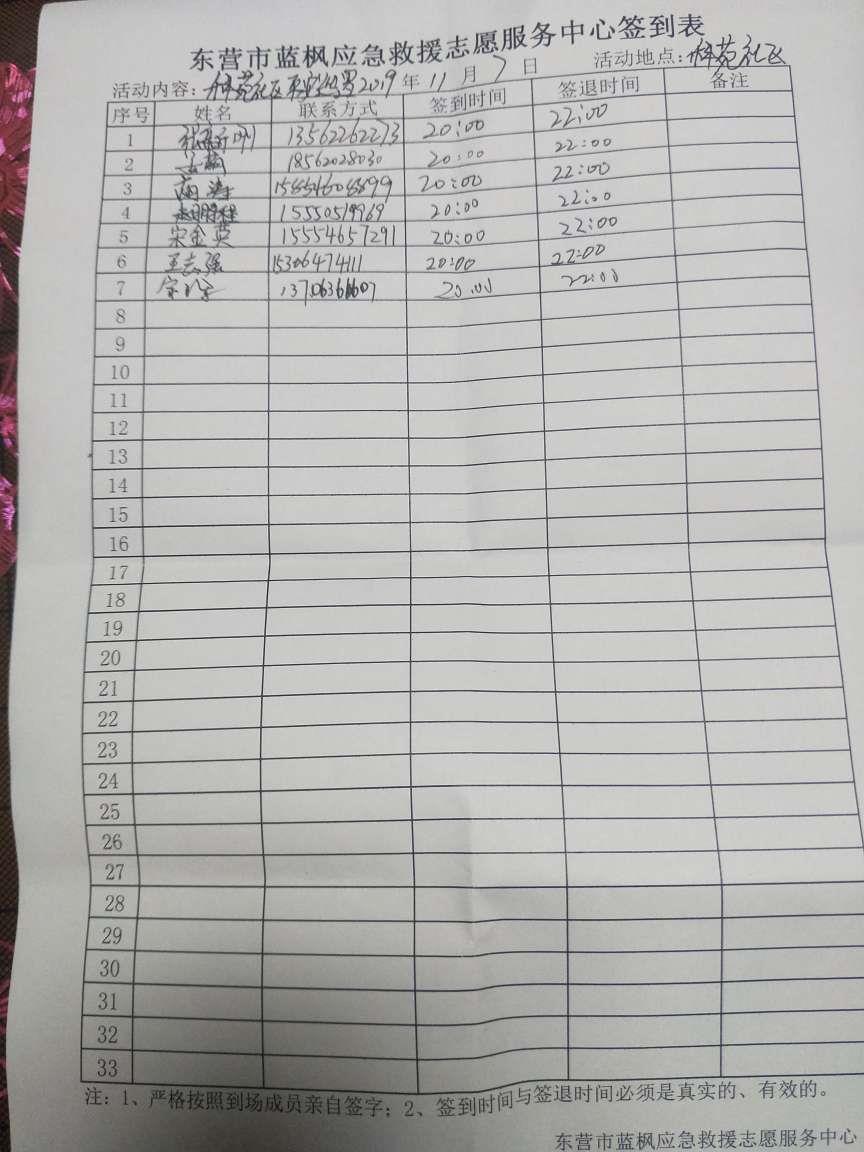 东营市蓝枫应急救援志愿服务中心签到表
活动内容：科苑社区 2019 年 11 月 7 日 活动地点：科苑社区
序号 姓名 联系方式 签到时间 签退时间 备注
1 13562262273 20:00 22:00
2 18562028030 20:00 22:00
3 20:00 22:00
4 20:00 22:00
5 宋金英 15554657291 20:00 22:00
6 王志强 15306474111 20:00 22:00
7 20:00 22:00
8
9
10
11
12
13
14
15
16
17
18
19
20
21
22
23
24
25
26
27
28
29
30
31
32
33
注：1、严格按照到场成员亲自签字；2、签到时间与签退时间必须是真实的、有效的。
东营市蓝枫应急救援志愿服务中心